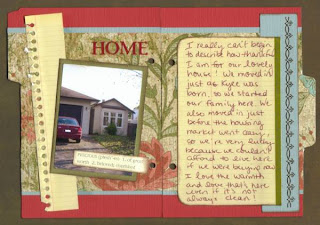 HOME
I really can't begin
to describe how thankful
I am for our lovely
house! We moved in
just as Kylee was
born, so we started
our family here. We
also moved in just
before the housing
market went crazy,
so we're very lucky
because we couldn't
afford to live here
if we were buying now.
I love the warmth
and love that's here,
even if it's not
always clean!